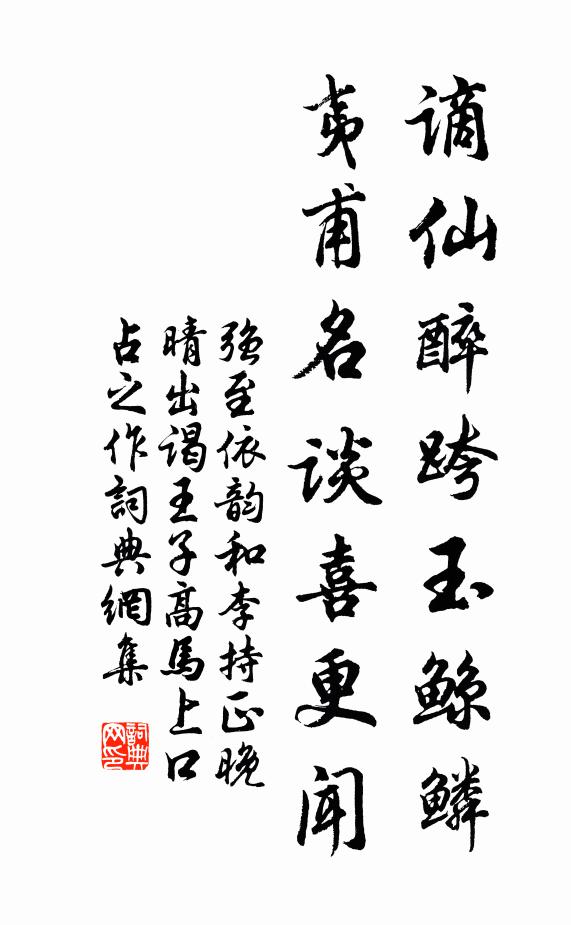 谪仙醉跨玉鲸鳞
夷甫名谈喜更闻
强至依韵和李持正晚
晴出谒王子高馬上口
占之作詞典網集
詞典网印